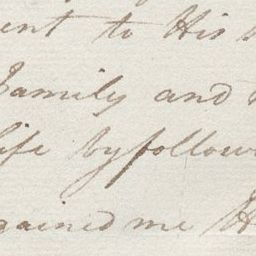 ent to His
Family and
life by follow
gained me H